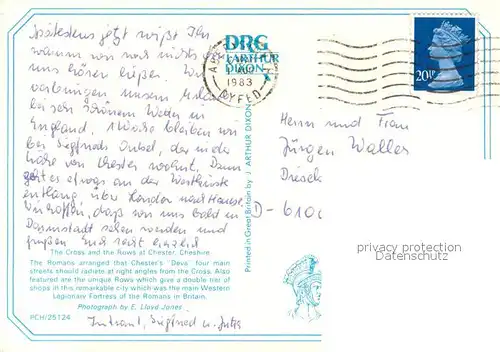 Spätestens jetzt wißt Ihr
warum von uns nichts
uns hören ließen. Wir
verbringen unsern Urlaub
bei sehr schönem Wetter in
England. 1 Woche bleiben wir
bei Siegfrieds Onkel, der in der
Nähe von Chester wohnt. Dann
geht es etwas an der Westküste
entlang, über London nach Hause.
Wir hoffen, daß wir uns bald in
Darmstadt sehen werden und
grüßen Euch recht herzlich
The Cross and the Rows at Chester, Cheshire
The Romans arranged that Chester's "Deva" four main
streets should radiate at right angles from the Cross. Also
featured are the unique Rows which give a double tier of
shops in this remarkable city which was the main Western
Legionary Fortress of the Romans in Britain.
Photograph by E. Lloyd Jones
PCH/25124
Siegfried u. Jutta
DRG
J. ARTHUR
DIXON
1983
DYFED
20½P
Printed in Great Britain by J. ARTHUR DIXON
Herrn und Frau
Jürgen Waller
D-610
privacy protection
Datenschutz